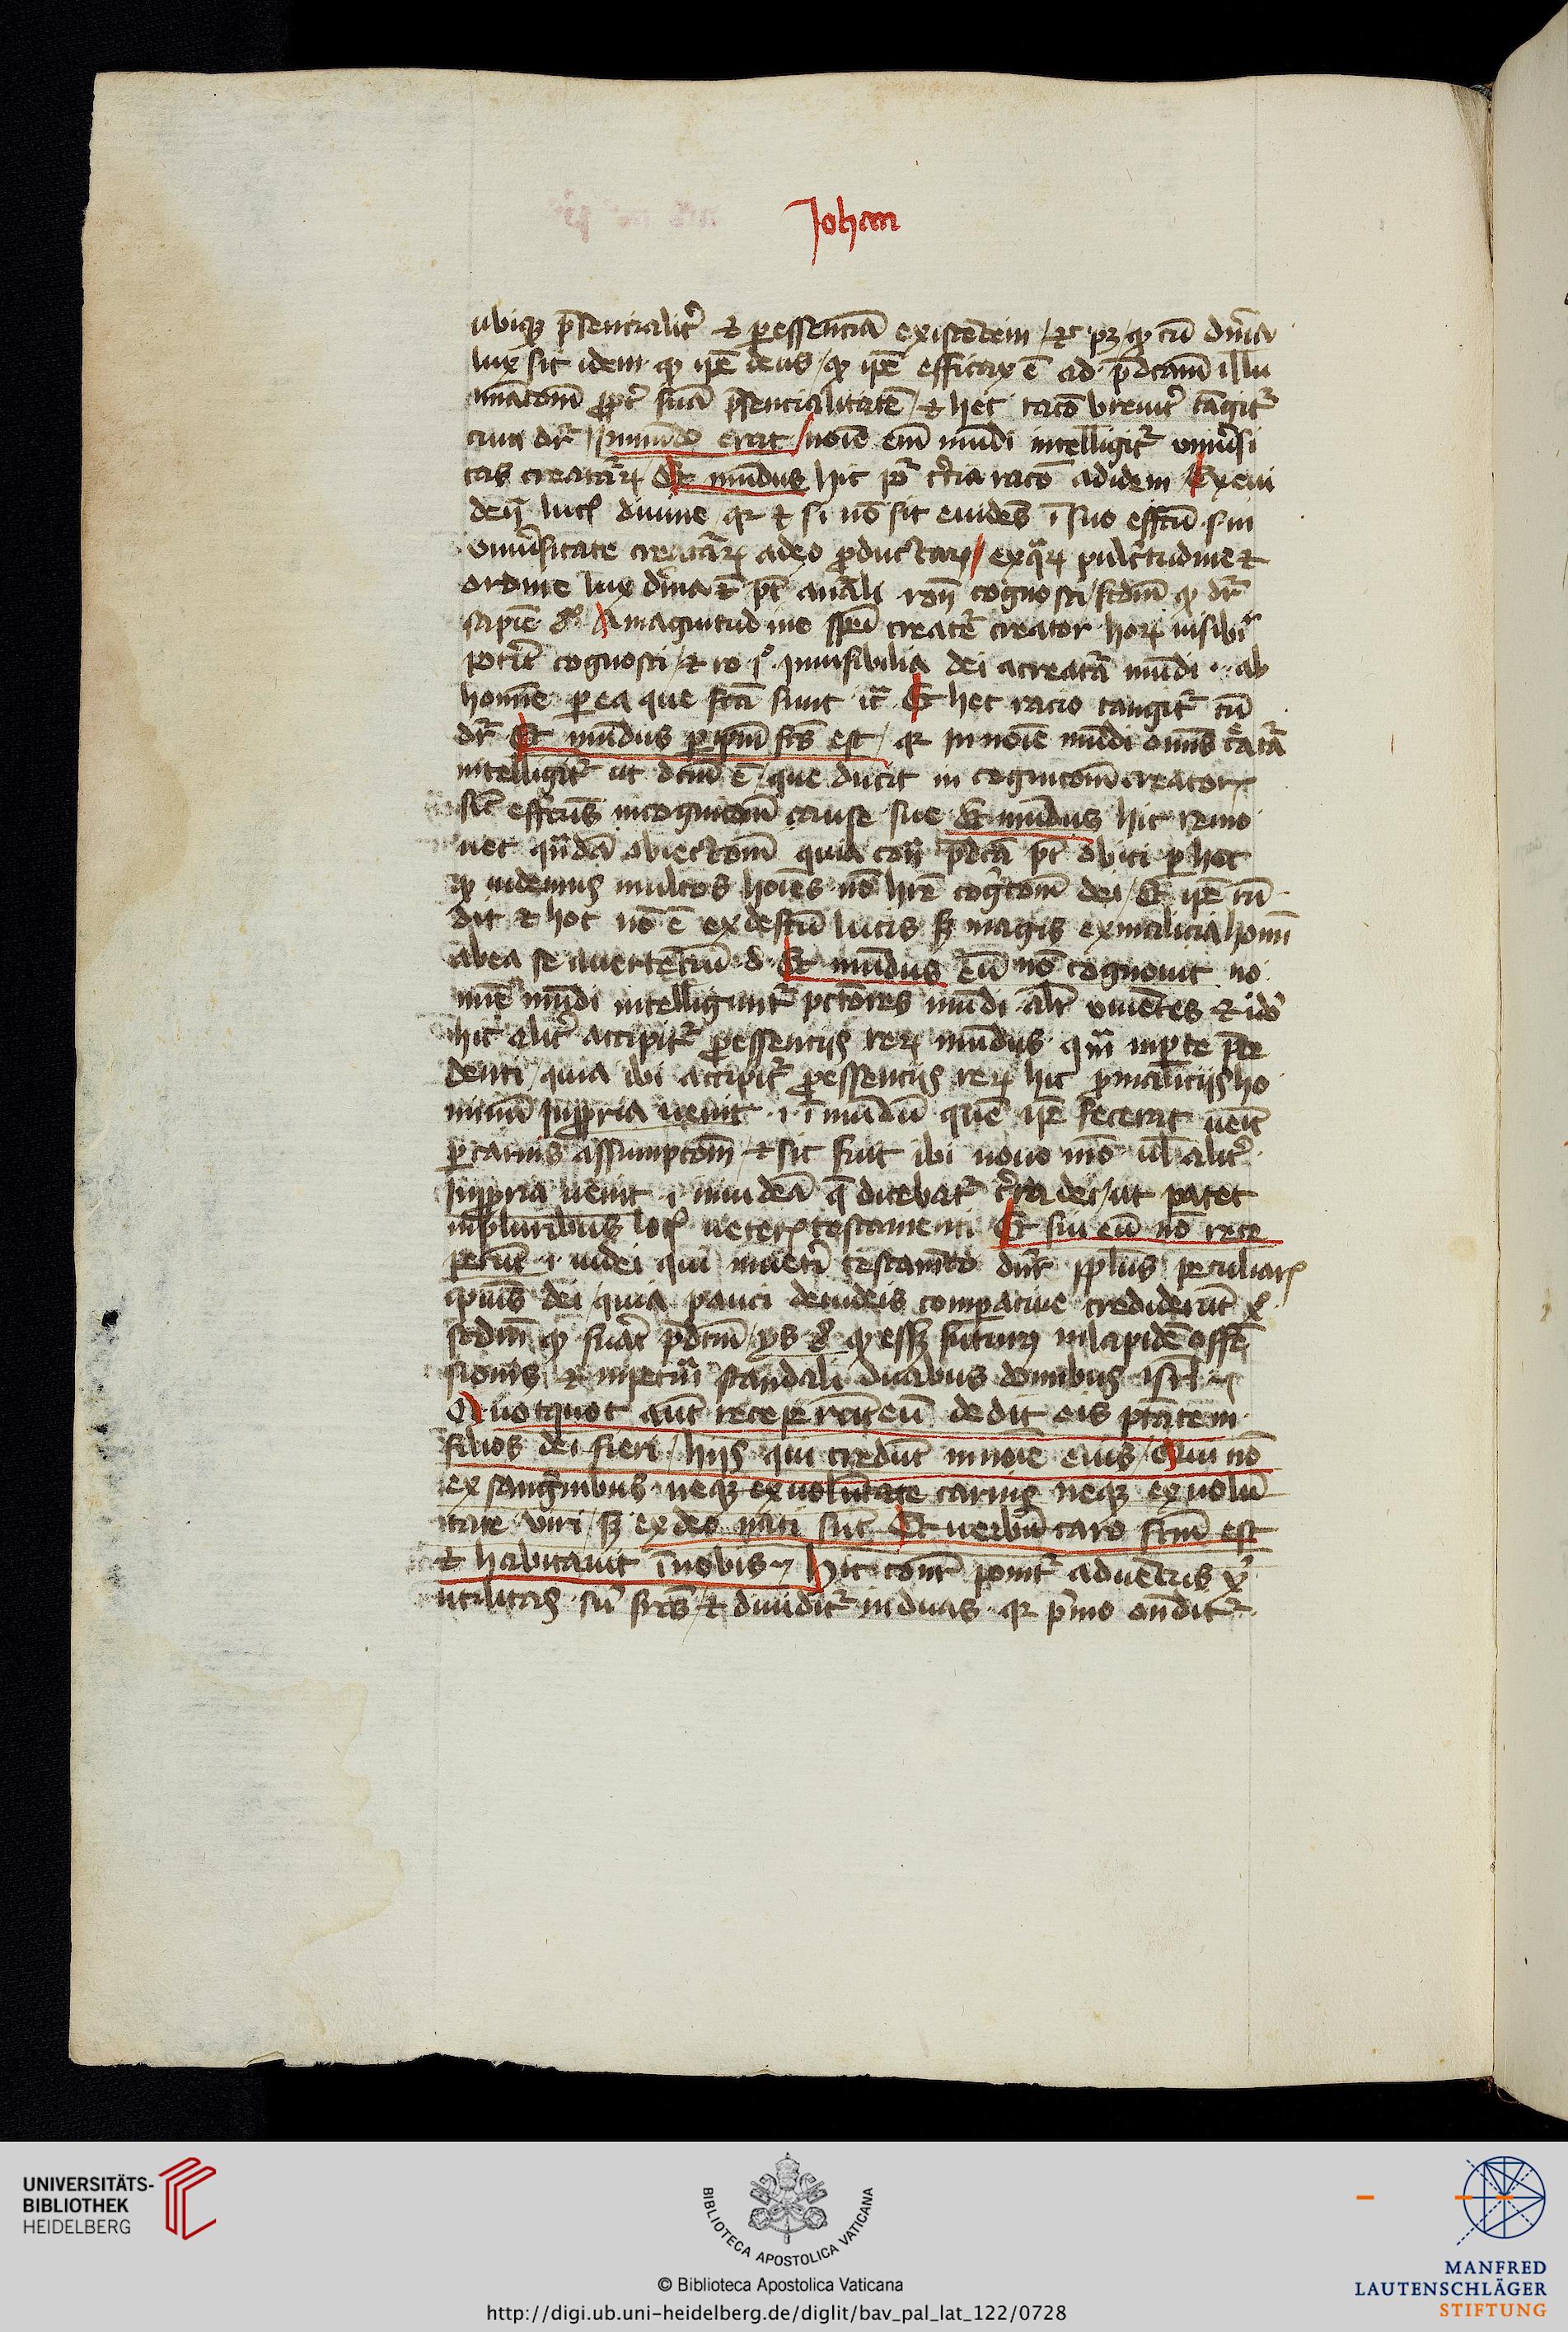 Johan
ubiqꝫ p̄sentialit᷑ et ꝑ essenciā existēdem / et sic pꝫ / ꝙ cū diuīa
lux sit idem ꝙ ip̄e deus / ꝙ ip̄e efficax ē ad p̄dcām illu
minatōm ꝓpt᷑ suā p̄sencialitatē / et hec racō breuit᷑ tāgit᷑
cum dr̄ / In mūdo erat / noīe em̄ mūdi intelligit᷑ uniu᷑si
tas creatar̄ꝝ / Et mūdus hic pōr t᷑cia racō ad idem Ex eui
luc᷑ diuine / qꝛ et si nō sit euidēs ī suo effcū s in
uniu᷑sitate creatar̄ꝝ adeo ꝓductarꝝ / ex qꝝ pulc᷑tudine et
ordine lux diuīa pt̄ cognosci / scdm̄ ꝙ dr̄
sapiē A magnitudine spēi creatē creator horꝝ uisibil᷑
pot᷑it cognosci / et ro j° Inuisibilia dei a creat᷑a mūdi .. ab
homīe ꝑ ea que fcā sunt it᷑ Et hec racio tangit᷑ cū
dr̄ Et mūdus ꝑ ip̄m fcūs est / qꝛ in noīe mūdi omīs c᷑at᷑a
intelligit᷑ ut dcm̄ ē / que ducit in cognicōm creatorꝭ
sic̄ effcūs in cognicōm cause sue Et mūdus hic remo
uet quādā obiectōm quia cōt᷑ p̄dcā pt̄ obici ꝑ hoc
ꝙ uidemus multos hoīes nō hr̄e cogᷓcōm dei / Et ip̄e
dit et hoc nō ē ex defcū lucis sꝫ magis ex malicia homī
ab ea se auertēciū d Et mūdus eū nō cognouit no
mīe mūdi intelligunt᷑ pctōres mūdi alr̄ uiuētes et iō
hic alit᷑ accipit᷑ mūdus qᷓm in ꝑte p̄ce
denti / quia ibi accipit᷑ ꝓ essencijs reꝝ hic ꝓ malicijs ho
minū In ꝓpria uenit .i. ī mūdū quē ip̄e fecerat uēit
ꝑ carnis assumpcōm / et sic fuit ibi nouo mō ul᷑ alit᷑
In ꝓpria uenit .i. in iudeā q̄ dicebat᷑ t᷑ra dei / ut patet
in pluribus loc᷑ ueterꝭ testamenti Et sui eū nō rece
perūt .i. iudei qui in uet᷑i testamēto dn̄r pp̄lus peculiarꝭ
dei / quia pauci de iudeis comparatiue crediderūt x°
scdm̄ ꝙ fuāt p̄dcm̄ / ys 8° ꝙ ess̄ꝫ futurꝰ in lapidē offē
sionis et in petrā scandali duabus domibus isrl̄
Quotquot aut̄ recep̄erūt eū dedit eis ptātem
filios dei fieri / hijs qui credūt in noīe eius / Qui nō
ex sangᷓnibus neqꝫ ex uolūtate carnis neqꝫ ex uolū
tate uiri / sꝫ ex deo nati sūt Et uerbū caro fcm̄ est
et habitauit ī nobis Hic pōnit᷑ aduentus xᷓ
utilitas et diuidit᷑ in duas qꝛ p̄mo ondit᷑
UNIVERSITÄTS-
BIBLIOTHEK
HEIDELBERG
BIBLIOTECA APOSTOLICA VATICANA
© Biblioteca Apostolica Vaticana
http://digi.ub.uni-heidelberg.de/diglit/bav_pal_lat_122/0728
MANFRED
LAUTENSCHLÄGER
STIFTUNG